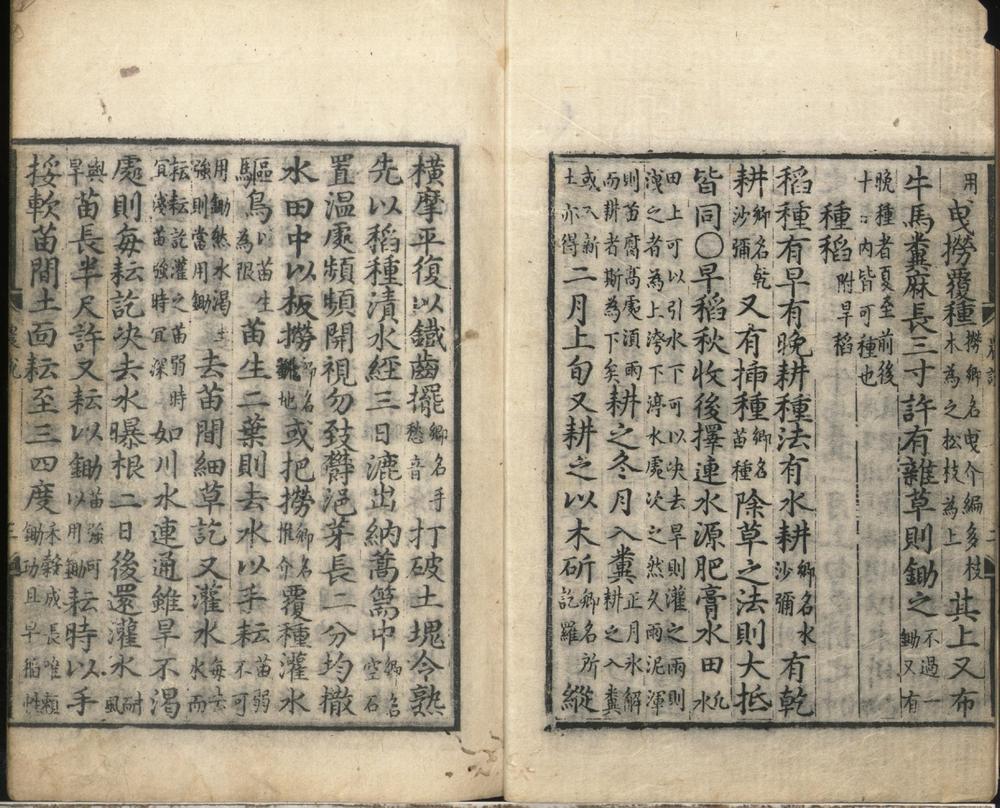 用曳撈覆種撈鄕名曳介編多枝木為之松枝為上其上又布
牛馬糞麻長三寸許有雜草則鋤之不過一鋤又有
晚種者夏至前後
十日內皆可種也
種稻附旱稻
稻種有早有晚耕種法有水耕鄕名水沙彌有乾
耕鄕名乾沙彌又有揷種鄕名苗種除草之法則大抵
皆同〇早稻秋收後擇連水源肥膏水田凡水
田上可以引水下可以决去旱則灌之雨則
淺之者為上洿下渟水處次之然久雨泥渾
則苗腐高處須雨而耕者斯為下矣耕之冬月入糞正月氷解耕之入糞
或入新土亦得二月上旬又耕之以木斫鄕名所訖羅縱
橫摩平復以鐵齒擺鄕名手愁音打破土塊令熟
先以稻種漬水經三日漉出納蒿篅中鄕名空石
置溫處頻頻開視勿致欝浥芽長二分均撒
水田中以板撈鄕名翻地或把撈鄕名推介覆種灌水
驅鳥以苗生為限苗生二葉則去水以手耘苗弱不可
用鋤然水渴土強則當用鋤去苗間細草訖又灌水每去水而
耘耘訖灌之苗弱時宜淺苗強時宜深如川水連通雖旱不渴
處則每耘訖决去水曝根二日後還灌水耐風
與旱苗長半尺許又耘以鋤苗強可以用鋤耘時以手
挼軟苗間土面耘至三四度禾穀成長唯賴鋤功且早稻性